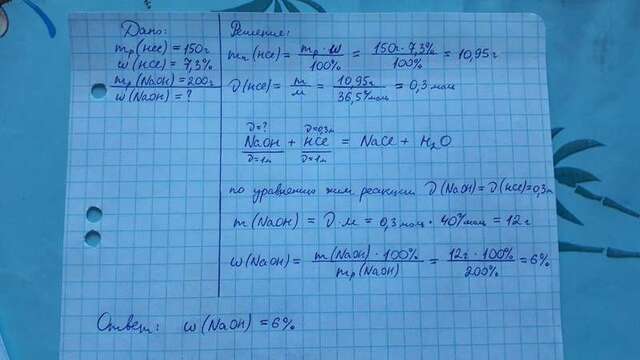 Дано:
mр(HCl) = 150г
w(HCl) = 7,3%
mр(NaOH) = 200г
w(NaOH) = ?
Решение:
mв(HCl) = mр · w / 100% = 150г · 7,3% / 100% = 10,95г
ν(HCl) = m / M = 10,95г / 36,5г/моль = 0,3 моль
ν=? ν=0,3м
NaOH + HCl = NaCl + H₂O
ν=1м ν=1м
по уравнению хим реакции ν(NaOH) = ν(HCl) = 0,3м
m(NaOH) = ν · M = 0,3 моль · 40г/моль = 12г
w(NaOH) = m(NaOH) · 100% / mр(NaOH) = 12г · 100% / 200% = 6%
Ответ: w(NaOH) = 6%